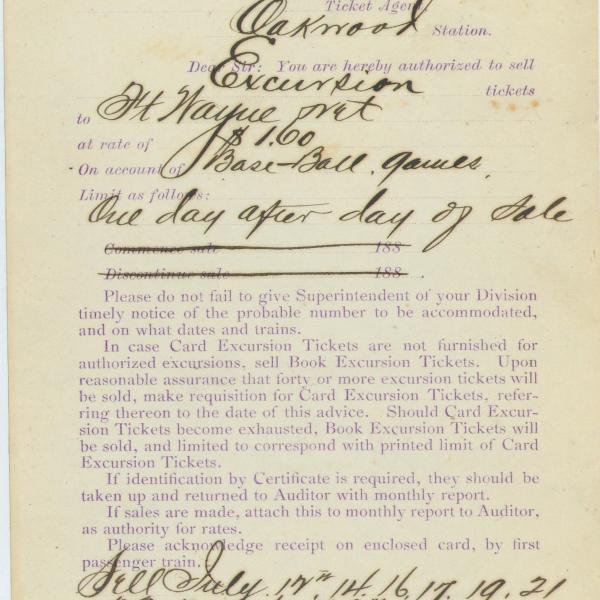 Ticket Agent,
Oakwood Station.
Dear Sir: You are hereby authorized to sell
Excursion tickets
to Ft Wayne net
at rate of $1.60
On account of Base-Ball games,
Limit as follows:
One day after day of sale
Commence sale 188
Discontinue sale 188 .
Please do not fail to give Superintendent of your Division
timely notice of the probable number to be accommodated,
and on what dates and trains.
In case Card Excursion Tickets are not furnished for
authorized excursions, sell Book Excursion Tickets. Upon
reasonable assurance that forty or more excursion tickets will
be sold, make requisition for Card Excursion Tickets, refer-
ring thereon to the date of this advice. Should Card Excur-
sion Tickets become exhausted, Book Excursion Tickets will
be sold, and limited to correspond with printed limit of Card
Excursion Tickets.
If identification by Certificate is required, they should be
taken up and returned to Auditor with monthly report.
If sales are made, attach this to monthly report to Auditor,
as authority for rates.
Please acknowledge receipt on enclosed card, by first
passenger train.
Sell July 12th 14, 16, 17, 19, 21